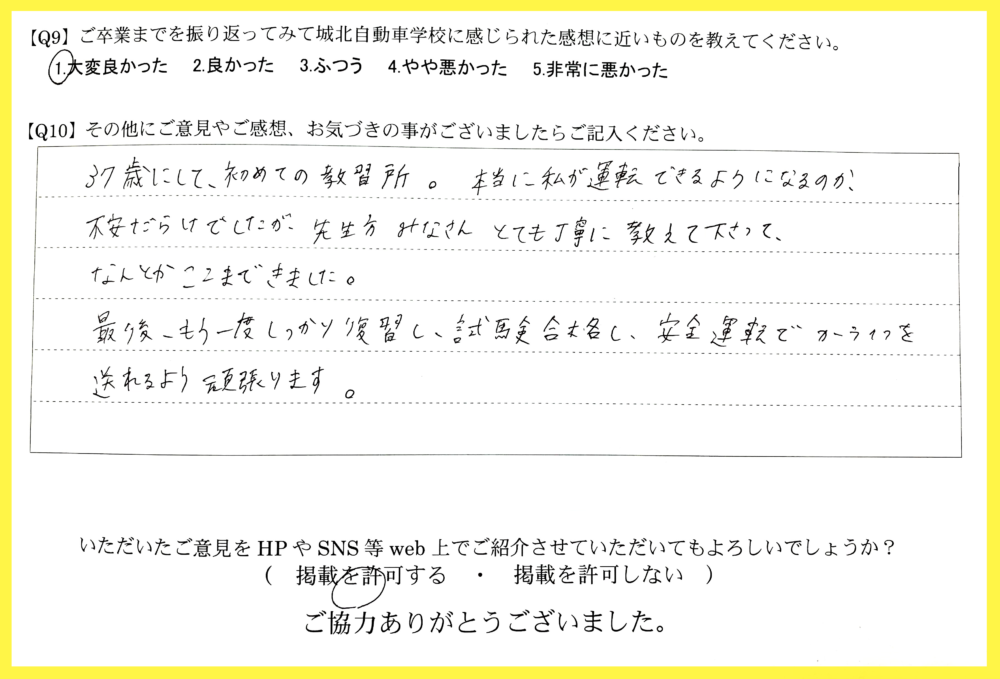 【Q9】ご卒業までを振り返ってみて城北自動車学校に感じられた感想に近いものを教えてください。
1.大変良かった 2.良かった 3.ふつう 4.やや悪かった 5.非常に悪かった
【Q10】その他にご意見やご感想、お気づきの事がございましたらご記入ください。
37歳にして、初めての教習所。本当に私が運転できるようになるのか、
不安だらけでしたが、先生方みなさんとても丁寧に教えて下さって、
なんとかここまできました。
最後、もう一度しっかり復習し、試験合格し、安全運転でカーライフを
送れるよう頑張ります。
いただいたご意見をHPやSNS等web上でご紹介させていただいてもよろしいでしょうか？
（ 掲載を許可する ・ 掲載を許可しない ）
ご協力ありがとうございました。